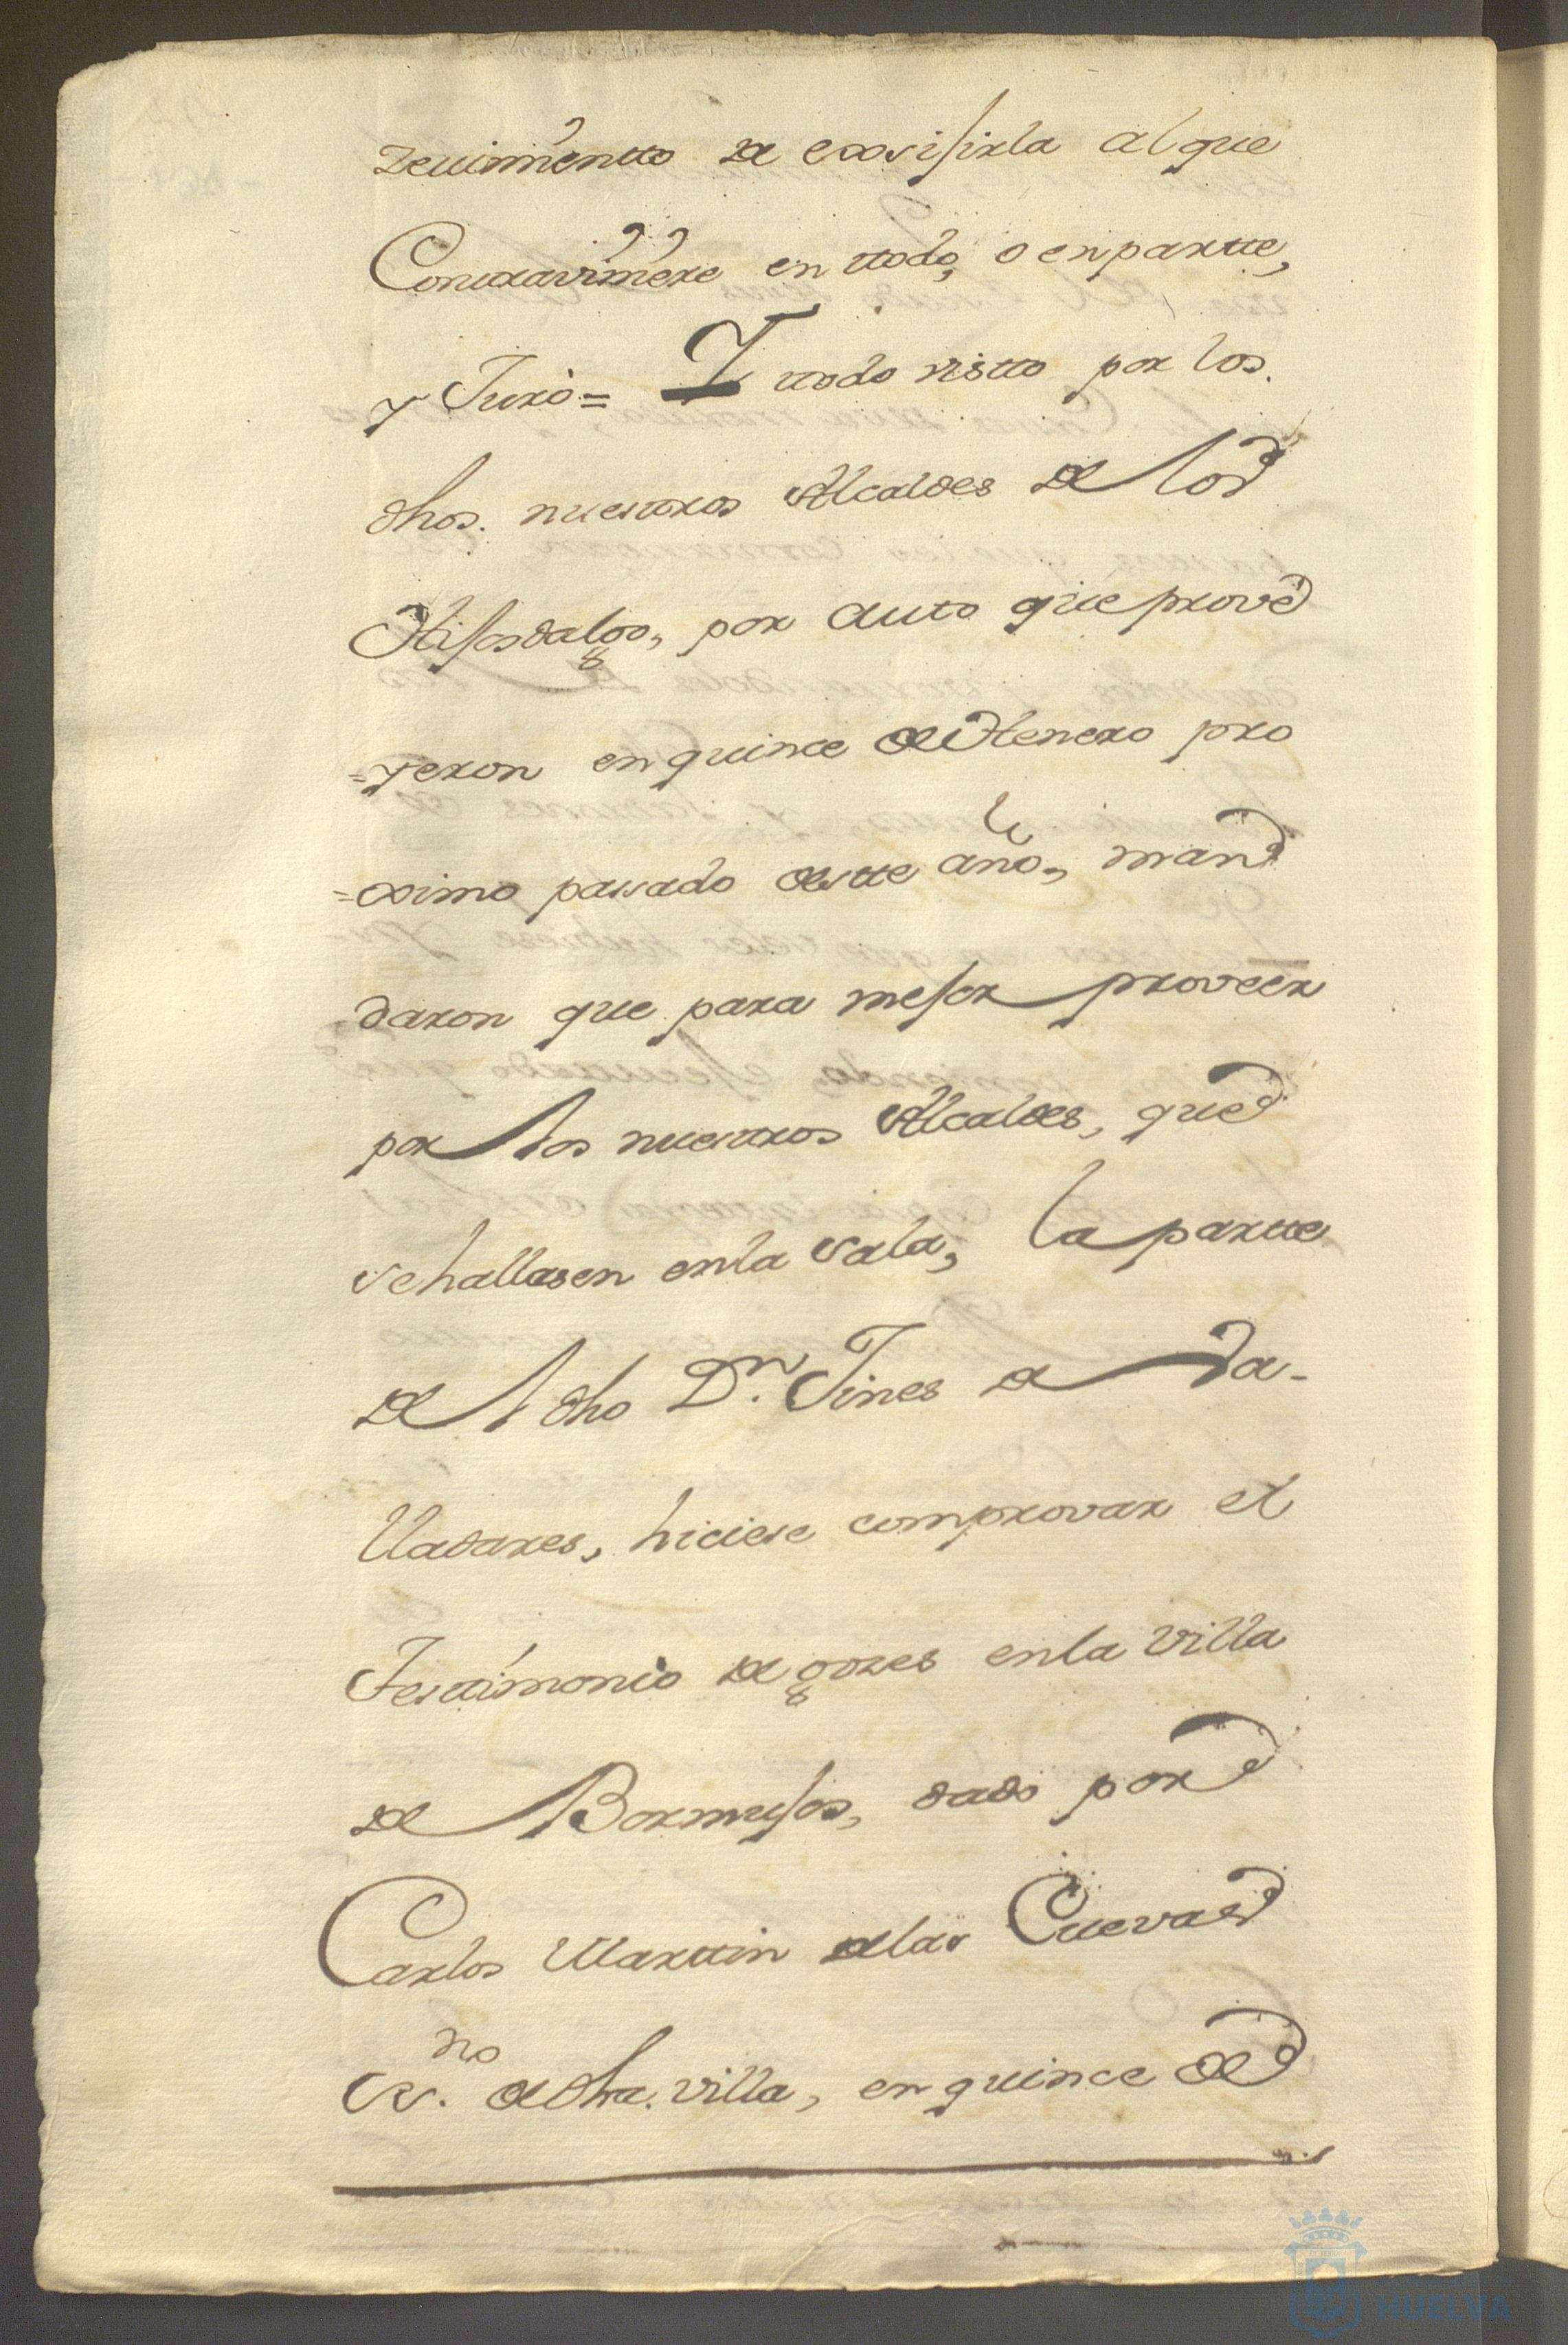 zeuimientto de exsivirla al que
Contravimere en ttodo, o en partte,
y Juró = Y ttodo vistto por los
dhos. nuestros Alcaldes de los
Hijosdalgo, por auto que prove
=yeron en quince de Henero pro
=ximo passado destte año, man
daron que para mejor proveer
por los nuestros Alcaldes, que
se hallasen en la Sala, la partte
del dho Dn. Jines de Va-
lladares, hiciese comprovar el
Testtimonio de gozes en la villa
de Bormujos, dado por
Carlos Marttin de las Cuevas
Es.no de dha. villa, en quince de
HUELVA